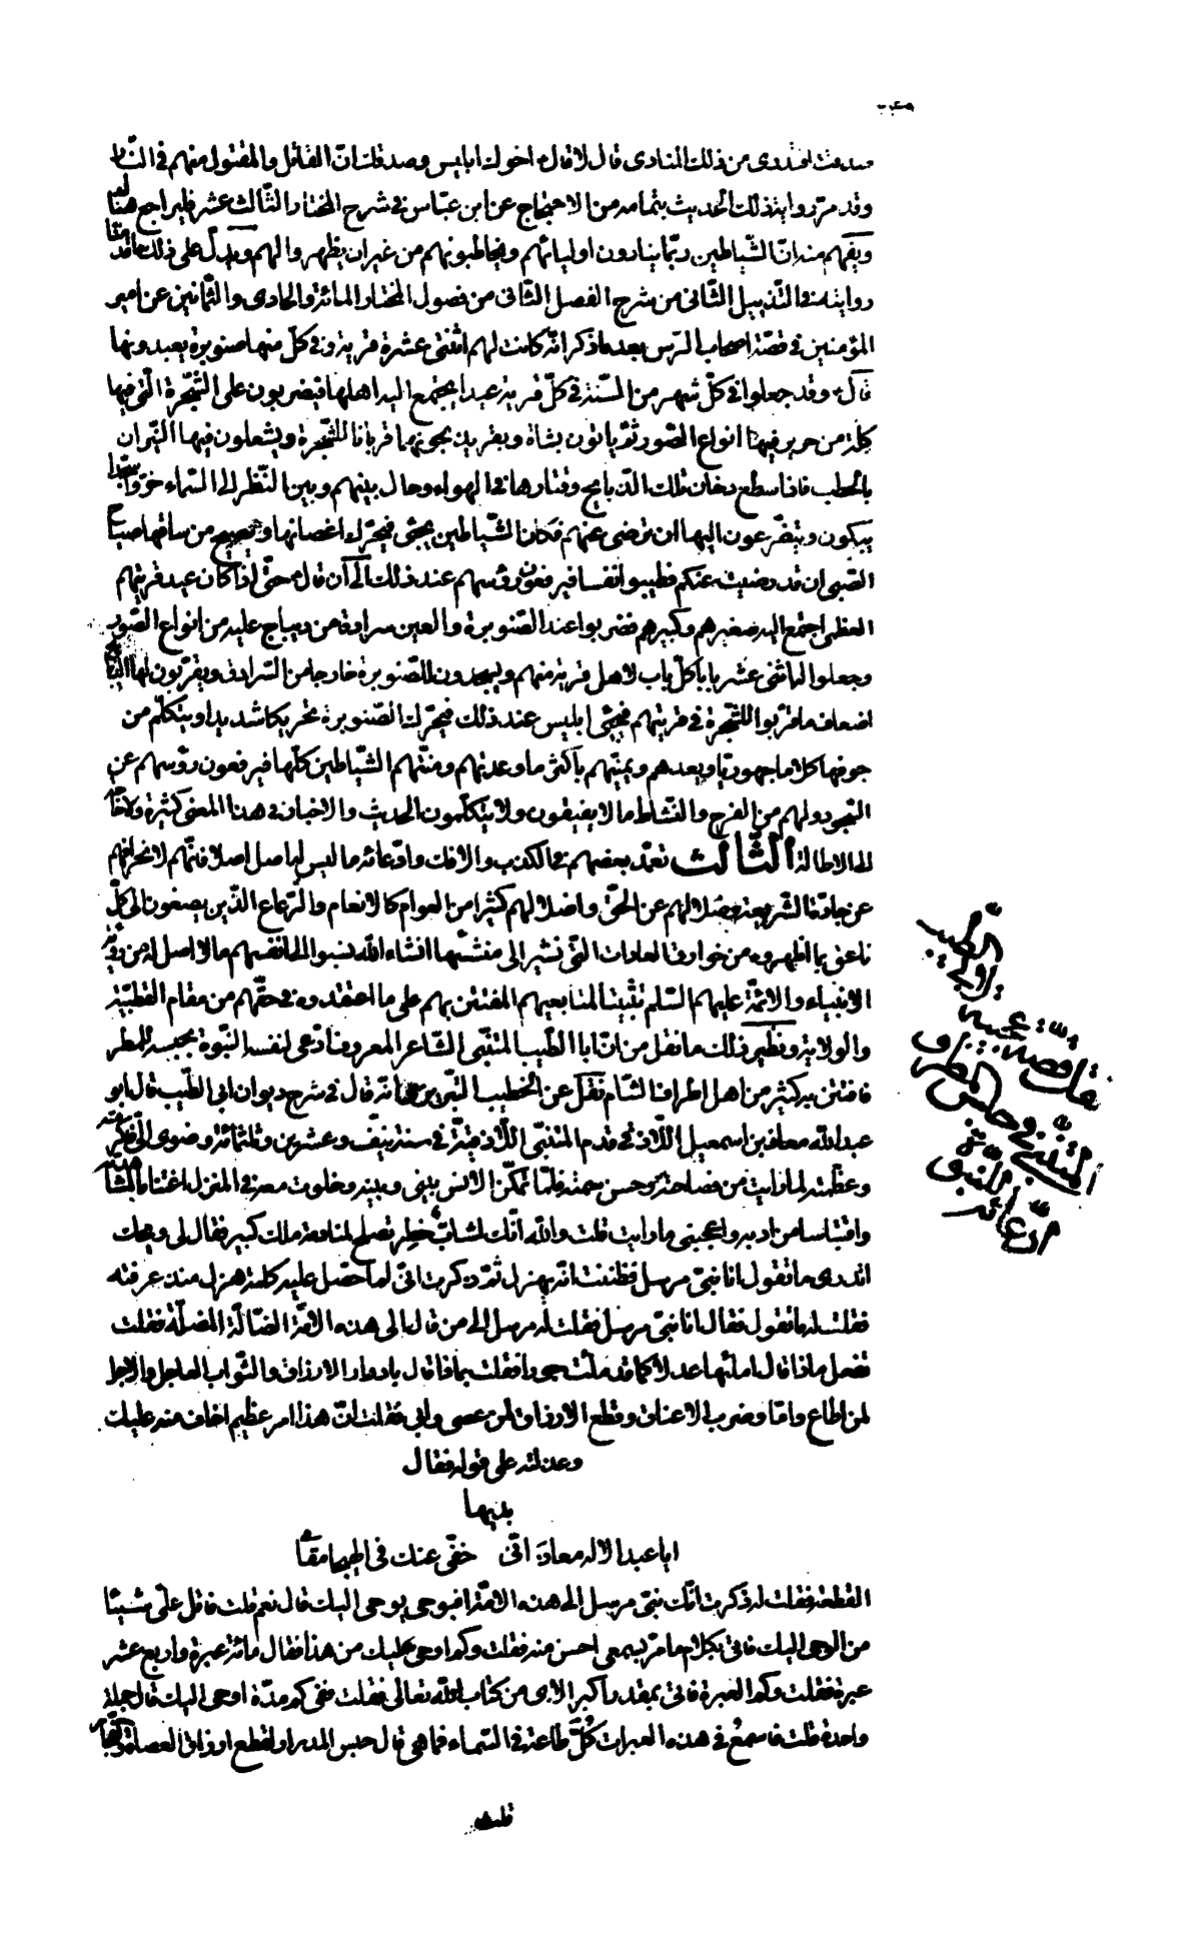 صدقت اتدرى من ذلك المنادى قال لا قال ع اخوك ابليس وصدقك انّ القاتل والمقتول منهم فى النّار
وقد مرّ رواية ذلك الحديث بتمامه من الاحتجاج عن ابن عبّاس فى شرح المختار الثّالث عشر فليراجع هناك
ويفهم منه انّ الشّياطين ربّما ينادون اوليائهم ويخاطبونهم من غير ان يظهروا لهم ويدلّ على ذلك ما قدّمنا
روايته فى التّذييل الثّانى من شرح الفصل الثّانى من فصول المختار المائة والحادى والثّمانين عن امير
المؤمنين فى قصّة اصحاب الرّس بعد ما ذكر انّه كانت لهم اثنتى عشرة قرية وفى كلّ منها صنوبرة يعبدونها
قال ع وقد جعلوا فى كلّ شهر من السّنة فى كلّ قرية عيدا يجتمع اليه اهلها فيضربون على الشّجرة الّتى فيها
كلّة من حرير فيها انواع الصّور ثمّ ياتون بشاة وبقر يذبحونهما قربانا للشّجرة ويشعلون فيها النّيران
بالحطب فاذا سطع دخان تلك الذّبايح وقتارها فى الهواء وحال بينهم وبين النّظر الى السّماء خرّوا سجّدا
يبكون ويتضّرعون اليها ان ترضى عنهم فكان الشّياطين يجئ فيحرّك اغصانها ويصيح من ساقها صياح
الصّبى ان قد رضيت عنكم فطيبوا نفسا فيرفعون رؤسهم عند ذلك الى ان قال ع حتّى اذا كان عيد قريتهم
العظمى اجتمع اليه صغيرهم وكبيرهم فضربوا عند الصّنوبرة والعين سرادقا من ديباج عليه من انواع الصّور
وجعلوا له اثنى عشر بابا كلّ باب لاهل قرية منهم ويسجدون للصّنوبرة خارجا من السّرادق ويقرّبون لها الذّبايح
اضعاف ما قرّبوا للشّجرة فى قريتهم فيجئ ابليس عند ذلك فيحرّك الصّنوبرة تحريكا شديدا ويتكلّم من
جوفها كلاما جهوريّا ويعدهم ويمنّيهم باكثر ما وعدتهم ومنّتهم الشّياطين كلّها فيرفعون رؤسهم عن
السّجود ولهم من الفرح والنّشاط ما لا يفيقون ولا يتكلّمون الحديث والاخبار فى هذا المعنى كثيرة ولا حاجة
الى الاطالة الثّالث تعمّد بعضهم فى الكذب والافك وادّعائه ما ليس له اصل اصلا فانّهم لانحرافهم
عن جادّة الشّريعة وضلالهم عن الحقّ واضلالهم كثيرا من العوام كالانعام والرّعاع الذّين يصغون الى كلّ
ناعق بما اظهروه من خوارق العادات التّى نشير الى منشئها انشاء الله نسبوا الى انفسهم ما لا اصل له من
الانبياء والائمّة عليهم السّلم تثبيتا لمتابعيهم المفتتن بهم على ما اعتقدوه فى حقّهم من مقام القطبيّة
والولاية ونظير ذلك ما نقل من انّ ابا الطّيب المتنبّى الشّاعر المعروف ادّعى لنفسه النّبوة بحبسه المطر
فافتتن به كثير من اهل اطراف الشّام نقل عن الخطيب التّبريزى انّه قال فى شرح ديوان ابى الطّيب قال ابو
عبد الله معاذ بن اسمعيل اللّاذقى قدم المتنبّى اللّاذقيّة فى سنة نيّف وعشرين وثلثمائة وضوى الىّ فاكرمته
وعظّمته لما رايت من فصاحته وحسن سمته فلمّا تمكّن الانس بينى وبينه وخلوت معه فى المنزل اغتناما لمشاهدته
واقتباسا من ادبه واعجبنى ما رايت قلت والله انّك لشابّ خطير تصلح لمنادمة ملك كبير فقال لى ويحك
اتدرى ما تقول انا نبىّ مرسل فظننت انّه يهزل ثمّ ذكرت انّى لم احصّل عليه كلمة هزل منذ عرفته
فقلت له ما تقول فقال انا نبىّ مرسل فقلت له مرسل الى من قال الى هذه الامّة الضّالّة المضلّة فقلت
تفعل ماذا قال املئها عدلا كما قد ملئت جورا فقلت بماذا قال بادرار الارزاق والثّواب العاجل والاجل
لمن اطاع واتا وضرب الاعناق وقطع الارزاق لمن عصى وابى فقلت انّ هذا امر عظيم اخاف منه عليك
وعذلته على قوله فقال
بديها
ايا عبد الاله معاذ انّى خفّى عنك فى الهيجا مقامى
القطعة فقلت له ذكرت انّك نبّى مرسل الى هذه الامّة افيوحى يوحى اليك قال نعم قلت فاتل علىّ شيئا
من الوحى اليك فاتى بكلام ما مرّ بسمعى احسن منه فقلت وكم اوحى عليك من هذا فقال مائة عبرة واربع عشر
عبرة فقلت وكم العبرة فاتى بمقدار اكبر الاى من كتاب الله تعالى فقلت ففى كم مدّة اوحى اليك قال جملة
واحدة قلت فاسمع فى هذه العبرات كُلّ طاعة فى السّماء فما هى قال حبس المدرار لقطع ارزاق العصاة
قلت
نقل قصّة عجيبة
لابى الطيّب
المتنبّى وحبس المطر
وادّعائه النبّوة